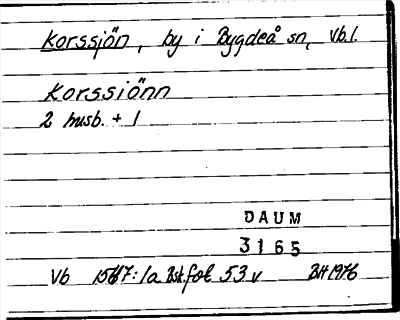 Korssjön, by i Bygdeå sn, Vb.l.
Korssiönn
2 husb. + 1
DAUM
3165
Vb 1567:1a Bsk. fol 53 v BH 1976